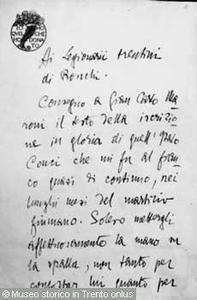 IO HO QVEL CHE HO DONATO
Ai Legionarii trentini
di Ronchi.
Consegno a Gian Carlo Ma=
roni il testo della iscrizio=
ne in gloria di quell'
Conci che mi fu al fian=
co quasi di continuo, nei
lunghi mesi del martirio
fiumano. Solevo mettergli
affettuosamente la mano su
la spalla, non tanto per
confortar lui quanto per
© Museo storico in Trento onlus